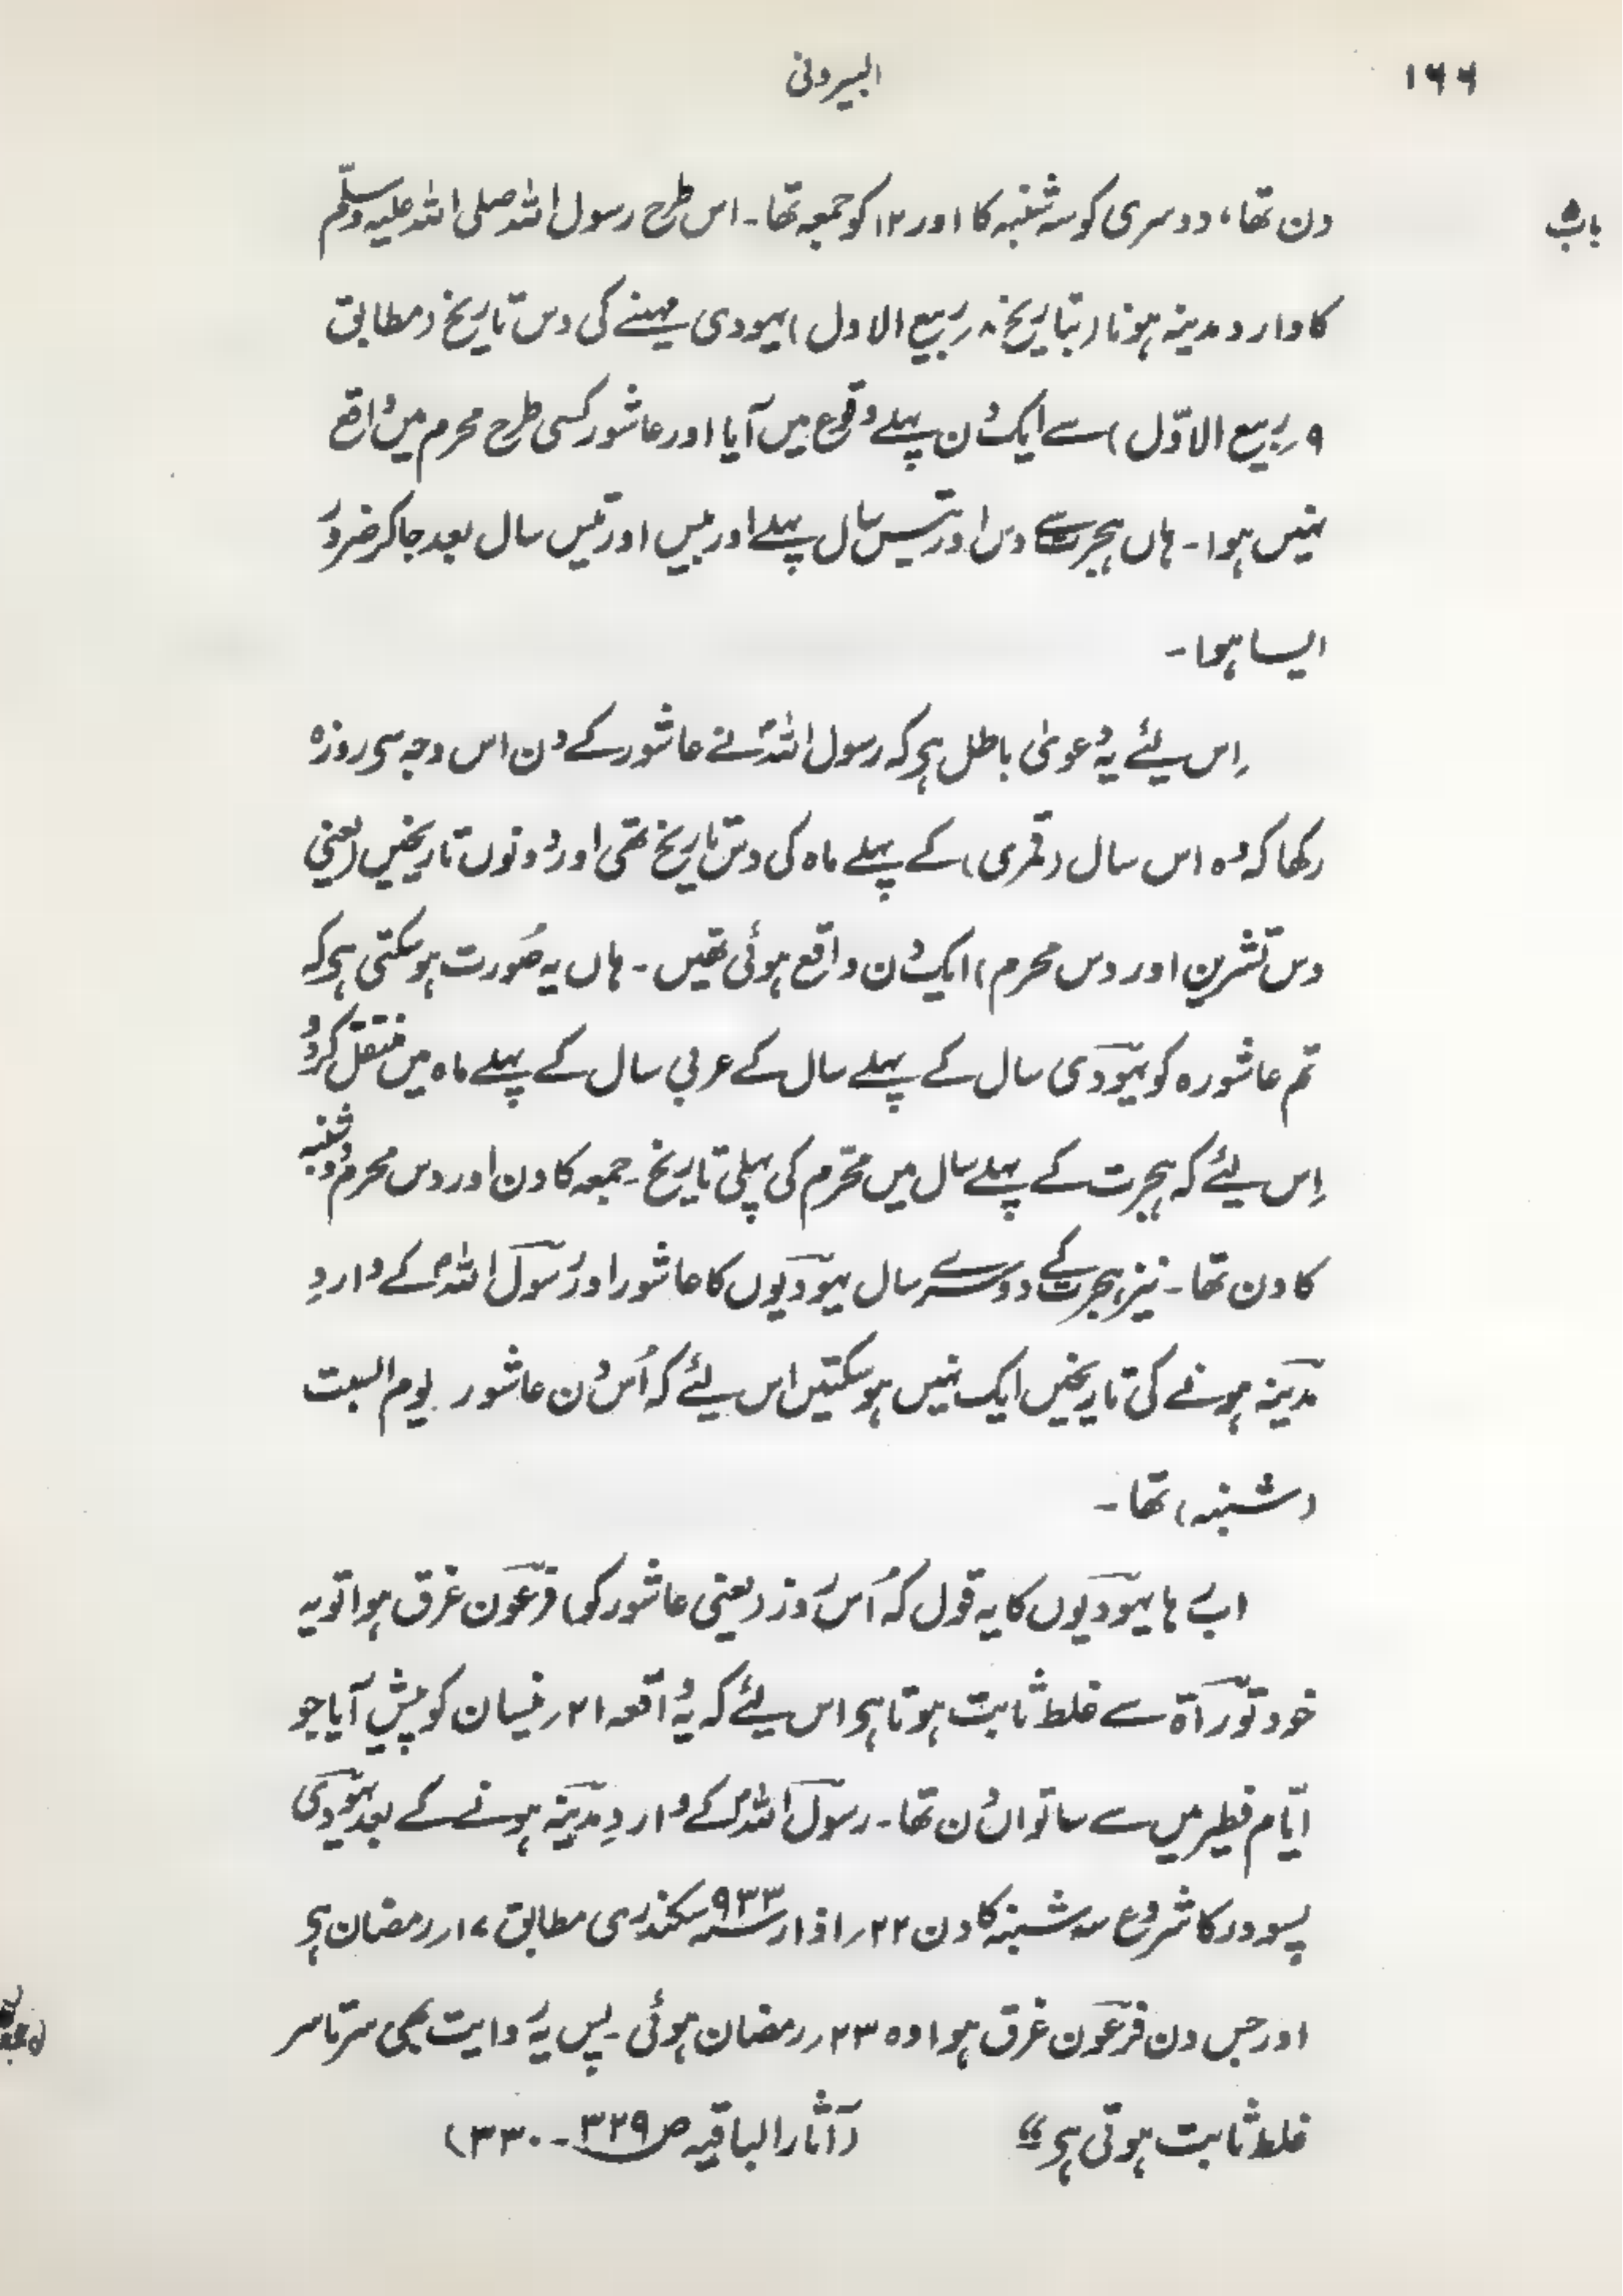 ۱۶۶
البیرونی
باب ۵
دن تھا، دوسری کو سہ شنبہ کا اور ۱۲ کو جمعہ تھا۔ اس طرح رسول اللہ صلی اللہ علیہ وسلّم
کا وارد مدینہ ہونا (بتاریخ ۸ ربیع الاول) یہودی مہینے کی دس تاریخ (مطابق
۹ ربیع الاوّل) سے ایک دن پہلے وقوع میں آیا اور عاشور کسی طرح محرم میں واقع
نہیں ہوا۔ ہاں ہجرت سے دس اور تیس سال پہلے اور بیس اور تیس سال بعد جا کر ضرور
ایسا ہوا۔
اِس لئے یہ دعویٰ باطل ہی کہ رسول اللہؐ نے عاشور کے دن اس وجہ سی روزہ
رکھا کہ وہ اس سال (قمری) کے پہلے ماہ کی دس تاریخ تھی اور دونوں تاریخیں (یعنی
دس تشرین اور دس محرم) ایک دن واقع ہوئی تھیں۔ ہاں یہ صُورت ہو سکتی ہی کہ
تم عاشورہ کو یہودی سال کے پہلے سال کے عربی سال کے پہلے ماہ میں منتقل کر دو
اِس لئے کہ ہجرت کے پہلے سال میں محرّم کی پہلی تاریخ۔ جمعہ کا دن اور دس محرم دو شنبہ
کا دن تھا۔ نیز ہجرت کے دوسرے سال یہودیوں کا عاشور اور رسول اللہؐ کے واردِ
مدینہ ہونے کی تاریخیں ایک نہیں ہو سکتیں اس لئے کہ اُس دن عاشور یوم السبت
(شنبہ) تھا۔
اب رہا یہودیوں کا یہ قول کہ اُس روز (یعنی عاشور کو) فرعون غرق ہوا تو یہ
خود توراۃ سے غلط ثابت ہوتا ہی اس لئے کہ یہ واقعہ ۲۱ ر نیسان کو پیش آیا جو
ایّام فطیر میں سے ساتواں دن تھا۔ رسول اللہؐ کے واردِ مدینہ ہونے کے بعد یہودی
پسودر کا شروع سہ شنبہ کا دن ۲۲ ر اذار سنہ ۹۳۳ سکندری مطابق ۱۷ ر رمضان ہی
اور جس دن فرعون غرق ہوا وہ ۲۳ ر رمضان ہوئی۔ پس یہ روایت بھی سرتاسر
غلط ثابت ہوتی ہی“ (آثار الباقیہ ص ۳۲۹۔۳۳۰)